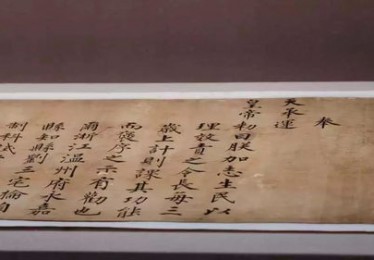 奉
天承運
皇帝敕曰朕加志生民以
理效責之令長每三
歲上計則課其功能
而褒序之示有勸也
爾浙江溫州府永嘉
縣知縣劉
制科